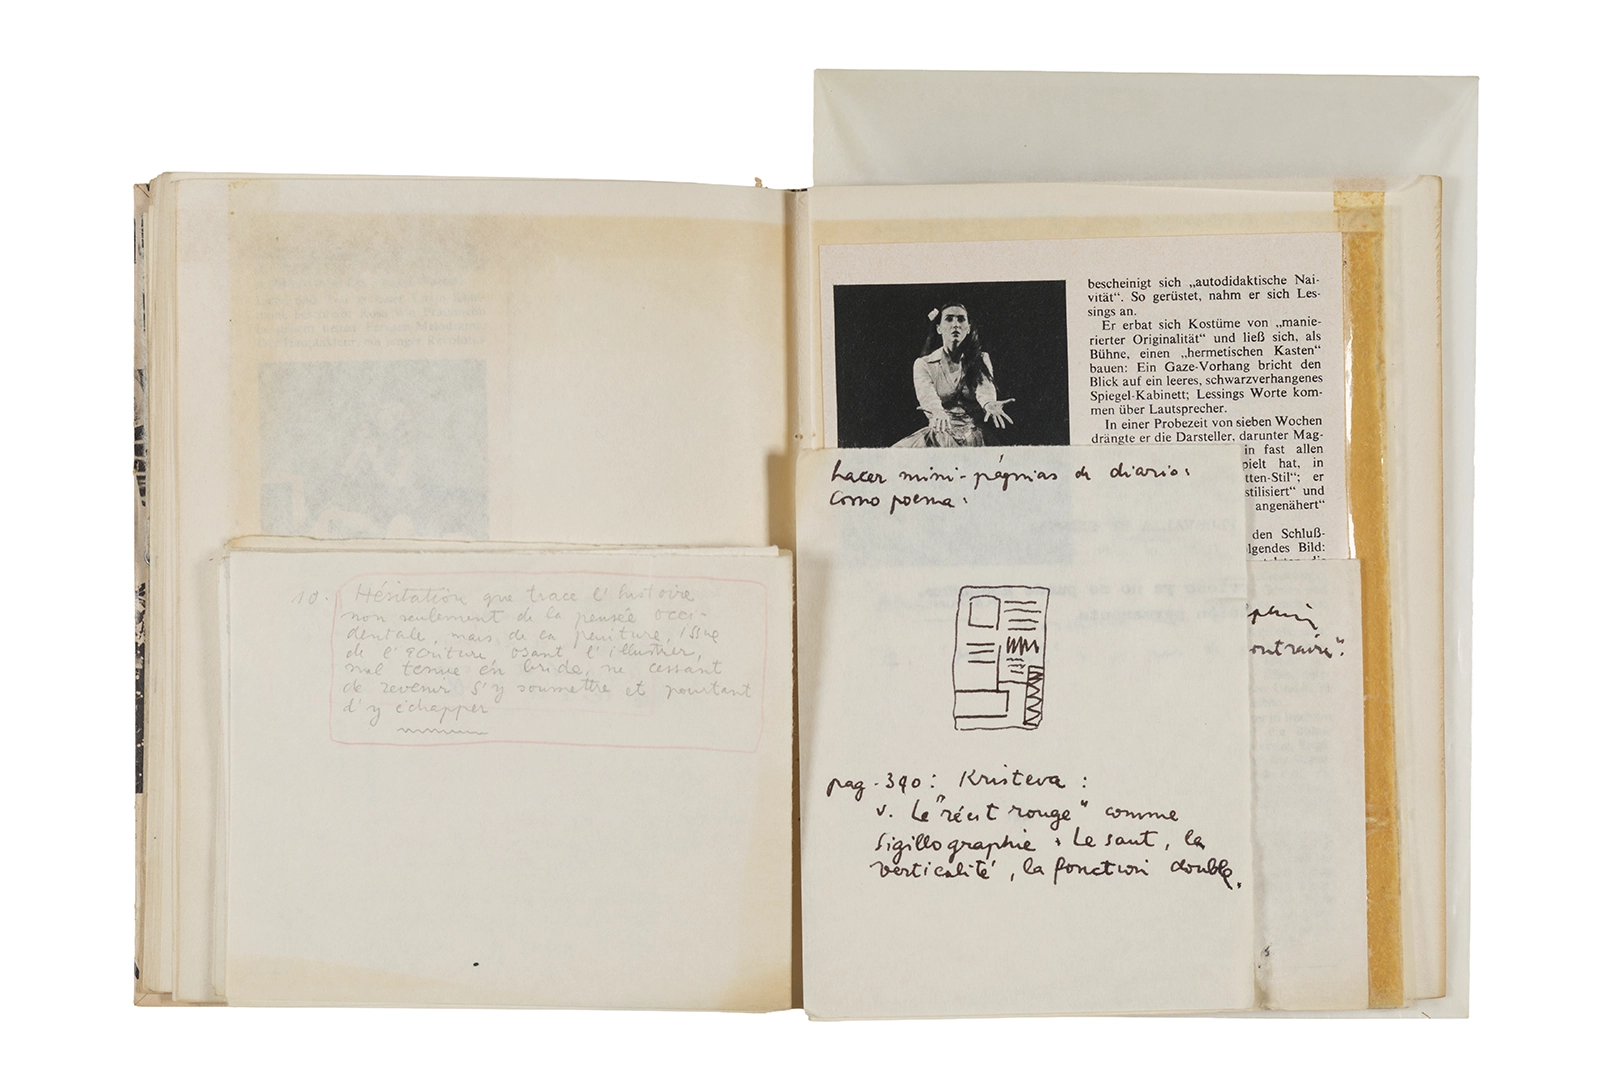 10. Hésitation que trace l'histoire
non seulement de la pensée occi-
dentale, mais de la peinture, issue
de l'écriture osant l'illustrer,
mal tenue en bride, ne cessant
de revenir s'y soumettre et pourtant
d'y échapper
bescheinigt sich „autodidaktische Nai-
vität“. So gerüstet, nahm er sich Les-
sings an.
Er erbat sich Kostüme von „manie-
rierter Originalität“ und ließ sich, als
Bühne, einen „hermetischen Kasten“
bauen: Ein Gaze-Vorhang bricht den
Blick auf ein leeres, schwarzverhangenes
Spiegel-Kabinett; Lessings Worte kom-
men über Lautsprecher.
In einer Probezeit von sieben Wochen
drängte er die Darsteller, darunter Mag-
in fast allen
pielt hat, in
tten-Stil“; er
stilisiert“ und
angenähert“
den Schluß-
lgendes Bild:
hacer mini-páginas de diario:
como poema:
pag. 390: Kristeva:
v. Le "récit rouge" comme
sigillographie: Le saut, la
verticalité, la fonction double.
ontraire".